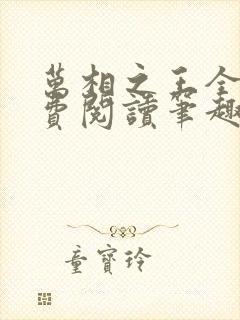 萬相之王全
費閱讀筆趣
童寶玲